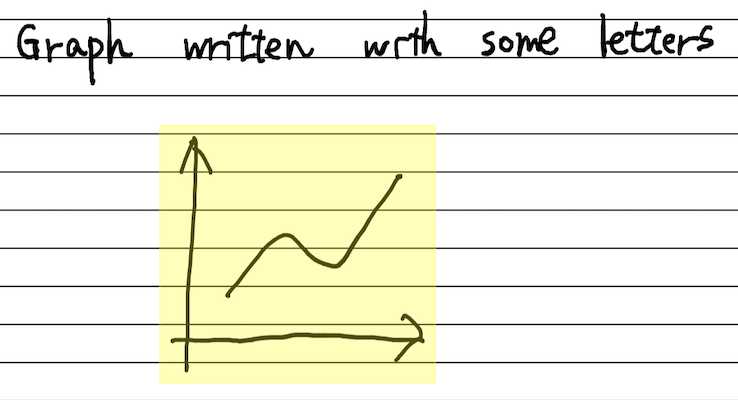 Graph written with some letters